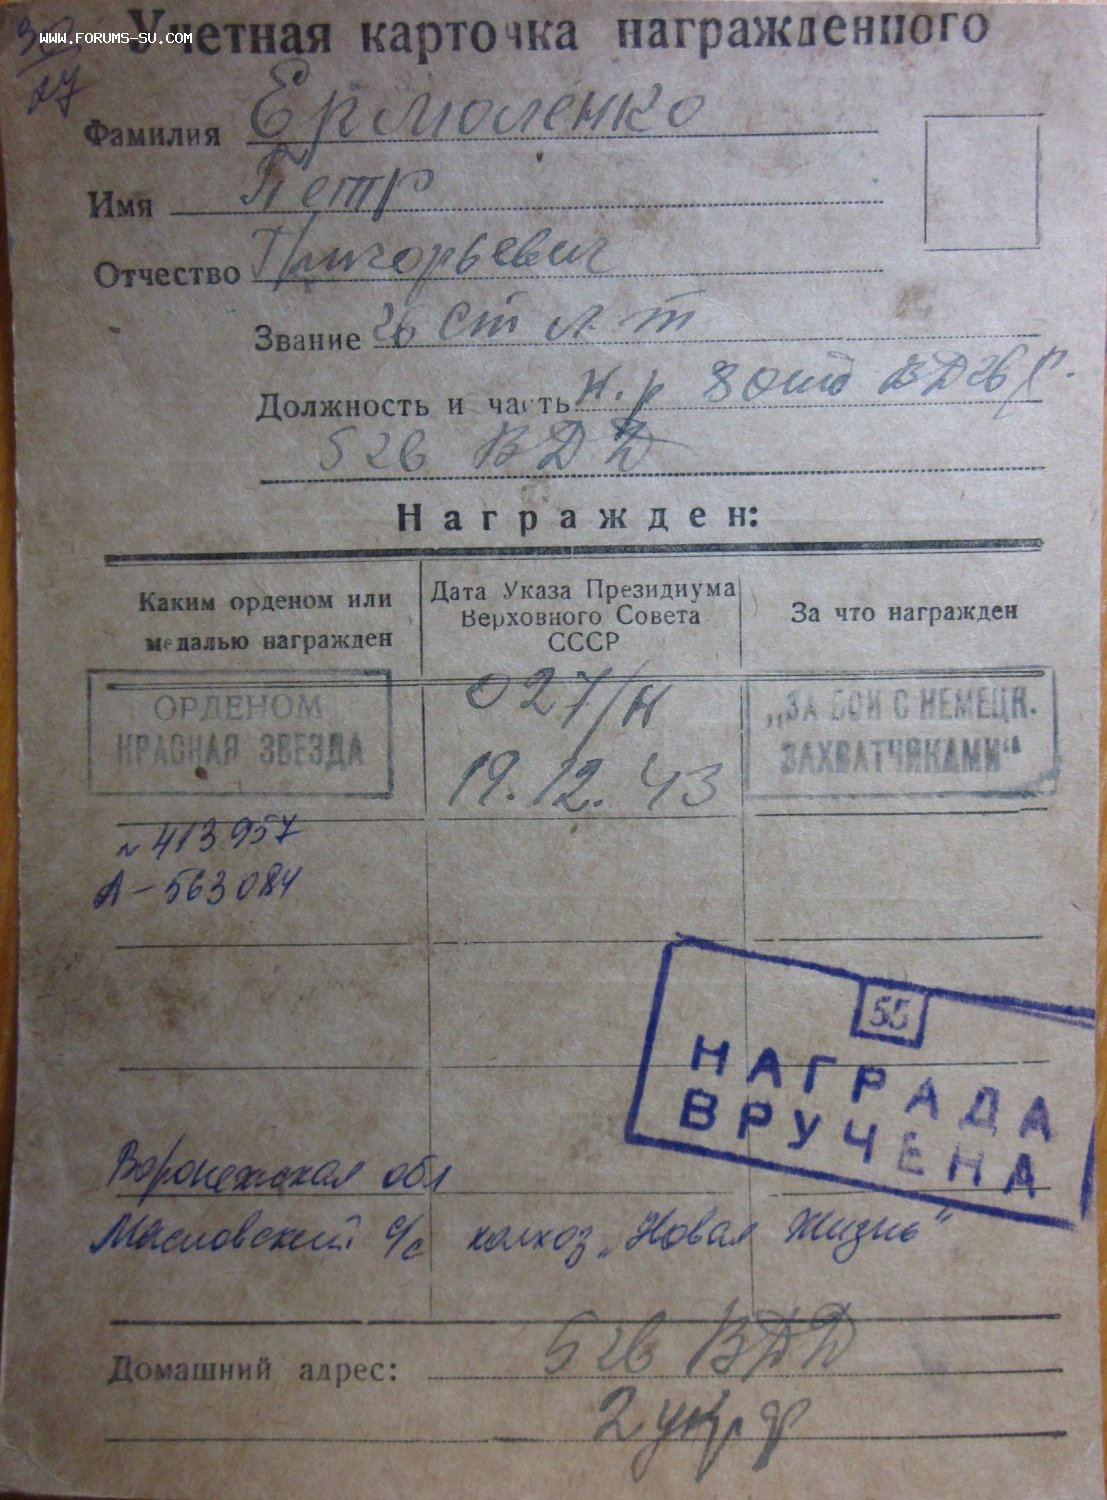 www.forums-su.com
Учетная карточка награжденного
27
Фамилия Ермоленко
Имя Петр
Отчество Григорьевич
Звание гв ст л-т
Должность и часть н.р 8 ВДгв
5 гв ВДД
Награжден:
Каким орденом или медалью награжден
Дата Указа Президиума Верховного Совета СССР
За что награжден
ОРДЕНОМ
КРАСНАЯ ЗВЕЗДА
027/н
19.12.43
„ЗА БОИ С НЕМЕЦК.
ЗАХВАТЧИКАМИ"
№ 413957
А-563084
55
НАГРАДА
ВРУЧЕНА
Воронежская обл
Масловский с/с колхоз „Новая Жизнь"
Домашний адрес: 5 гв ВДД
2 укр ф